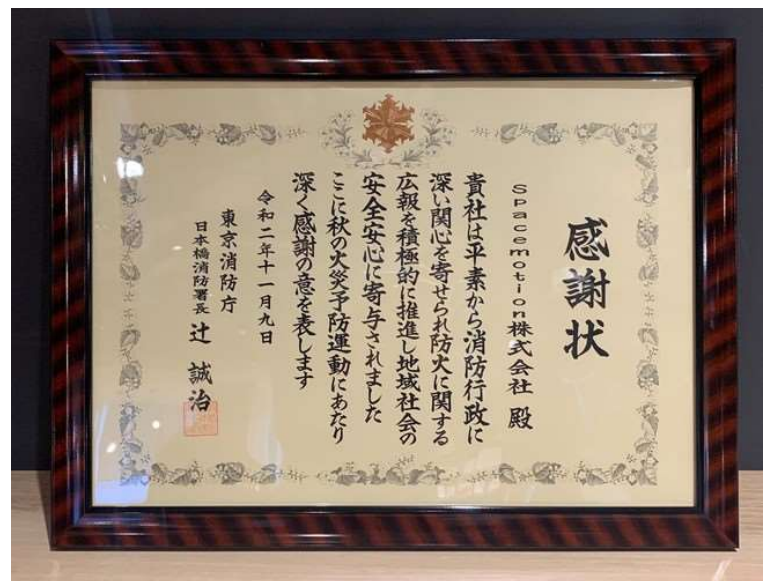 感謝状
Spacemotion株式会社 殿
貴社は平素から消防行政に
深い関心を寄せられ防火に関する
広報を積極的に推進し地域社会の
安全安心に寄与されました
ここに秋の火災予防運動にあたり
深く感謝の意を表します
令和二年十一月九日
東京消防庁
日本橋消防署長 辻 誠治